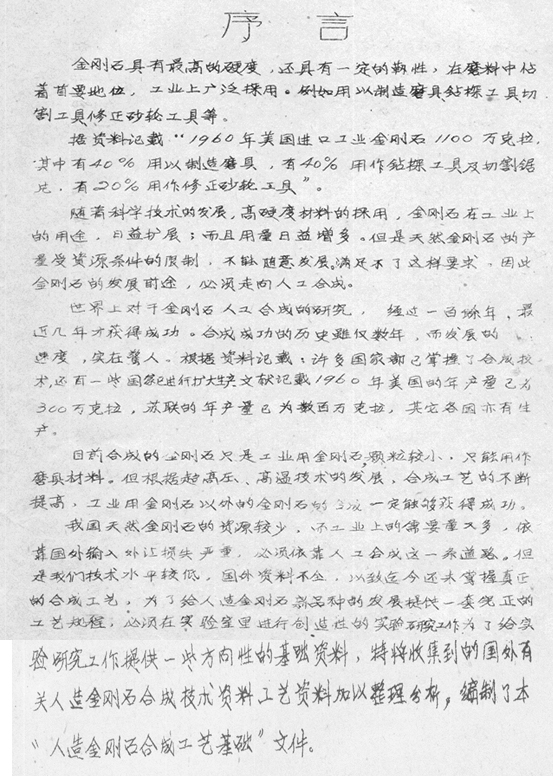 序言
金刚石具有最高的硬度,还具有一定的韧性,在磨料中佔
着首要地位,工业上广泛採用。例如用以制造磨具钻探工具切
割工具修正砂轮工具等。
据资料记载“1960年美国进口工业金刚石1100万克拉,
其中有40%用以制造磨具,有40%用作钻探工具及切割锯
片,有20%用作修正砂轮工具”。
随着科学技术的发展,高硬度材料的採用,金刚石在工业上
的用途,日益扩展;而且用量日益增多。但是天然金刚石的产
量受资源条件的限制,不能随意发展。满足不了这样要求,因此
金刚石的发展前途,必须走向人工合成。
世界上对于金刚石人工合成的研究,经过一百馀年、最
近几年才获得成功。合成成功的历史虽仅数年,而发展的
速度,实在驚人。根据资料记载:许多国家都已掌握了合成技
术,还有一些国家已进行扩大生产文献记载1960年美国的年产量已为
300万克拉,苏联的年产量已为数百万克拉,其它各国亦有生
产。
目前合成的金刚石只是工业用金刚石,颗粒较小,只能用作
磨具材料。但根据超高压、高温技术的发展,合成工艺的不断
提高,工业用金刚石以外的金刚石的合成一定能够获得成功。
我国天然金刚石的资源较少,而工业上的需要量又多,依
靠国外输入外汇损失严重,必须依靠人工合成这一条道路。但
是我们技术水平较低,国外资料不全,以致迄今还未掌握真正
的合成工艺,为了给人造金刚石新品种的发展提供一套完正的
工艺规程,必须在实验室里进行创造性的实验研究工作为了给实
验研究工作提供一些方向性的基础资料,特将收集到的国外有
关人造金刚石合成技术资料工艺资料加以整理分析,编制了本
“人造金刚石合成工艺基础”文件。